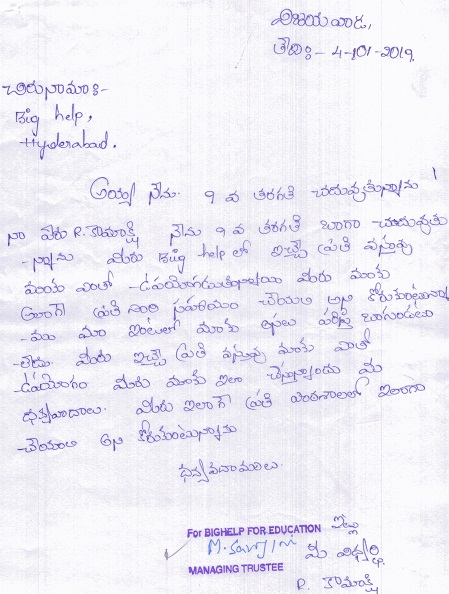 విజయవాడ,
తేది:- 4-101-2019.
చిరునామా:-
Big help,
Hyderabad.
అయ్యా నేను. 9 వ తరగతి చదువుతున్నాను
నా పేరు R. కామాక్షి నేను 9 వ తరగతి బాగా చదువుతు
-న్నాను మీరు Big help లో ఇచ్చే ప్రతి వస్తువు
మాకు ఎంతో -ఉపయోగపడుతున్నాయి మీరు మాకు
ఇలాగే ప్రతి సహాయం చేయాలి అని కోరుకుంటున్నా
-ము మా ఇంటిలో మాకు అసలు పరిస్థితి బాగుండటం
-లేదు. మీరు ఇచ్చే ప్రతి వస్తువు మాకు ఎంతో
-ఉపయోగం మీరు మాకు ఇలా చేస్తున్నందు మీ
ధన్యవాదాలు. మీరు ఇలాగే ప్రతి పాఠశాలలో ఇలాగా
-చేయాలి అని కోరుకుంటున్నాను
ధన్యవాదాములు.
ఇట్లు
For BIGHELP FOR EDUCATION
మీ విద్యార్థి
MANAGING TRUSTEE
R. కామాక్షి